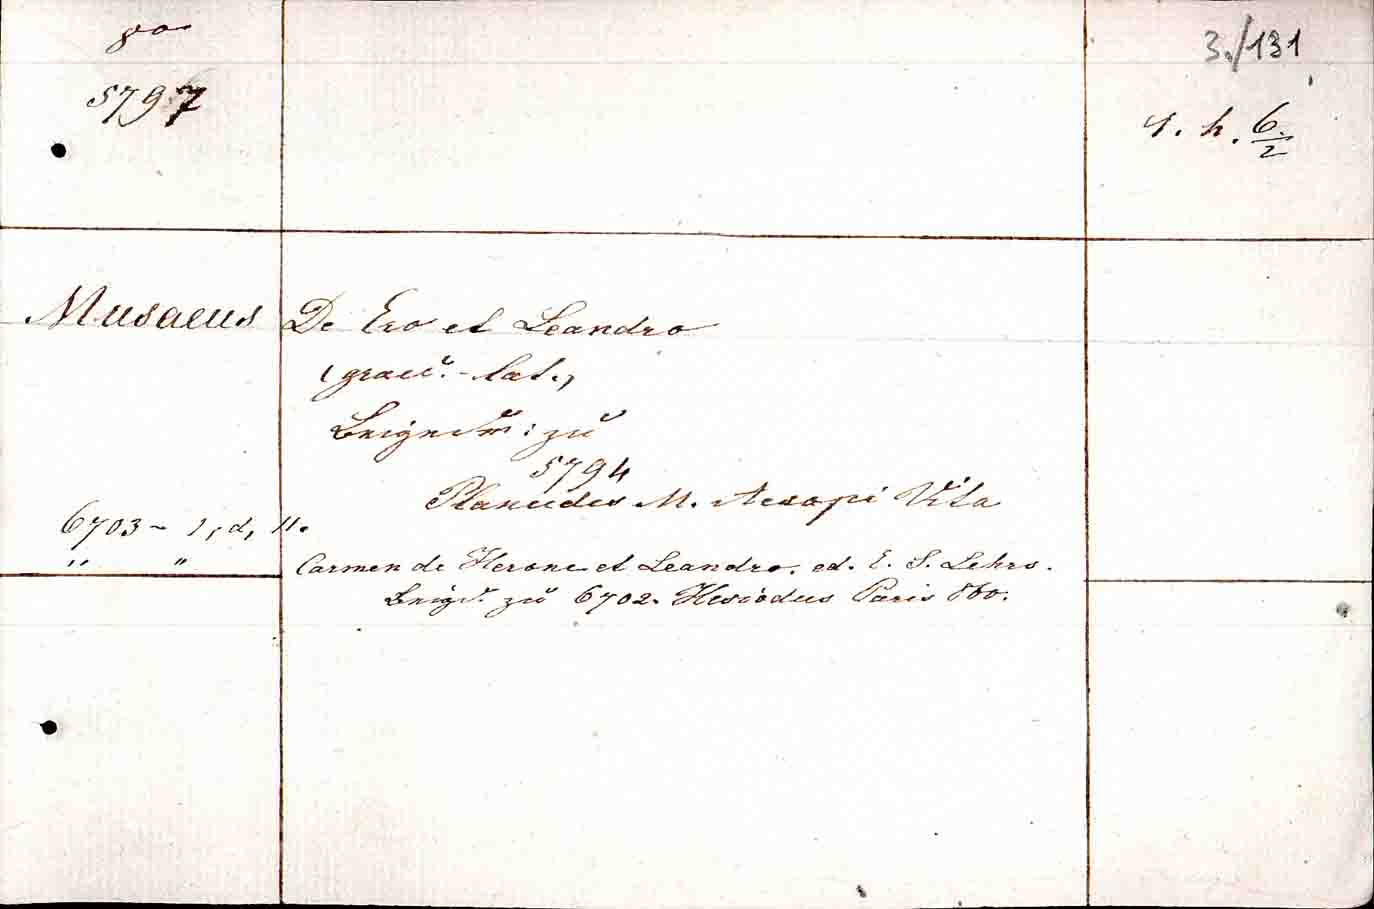 8o
3./131
5797
1. h. 6./2
Musaeus De Ero et Leandro
(graec. - lat.)
zu
5794
Planudes M. Aesopi Vita
6703 - 1, d, 11.
" " Carmen de Herone et Leandro. ed. E. S. Lehrs.
zu 6702. Hesiodus Paris 860.